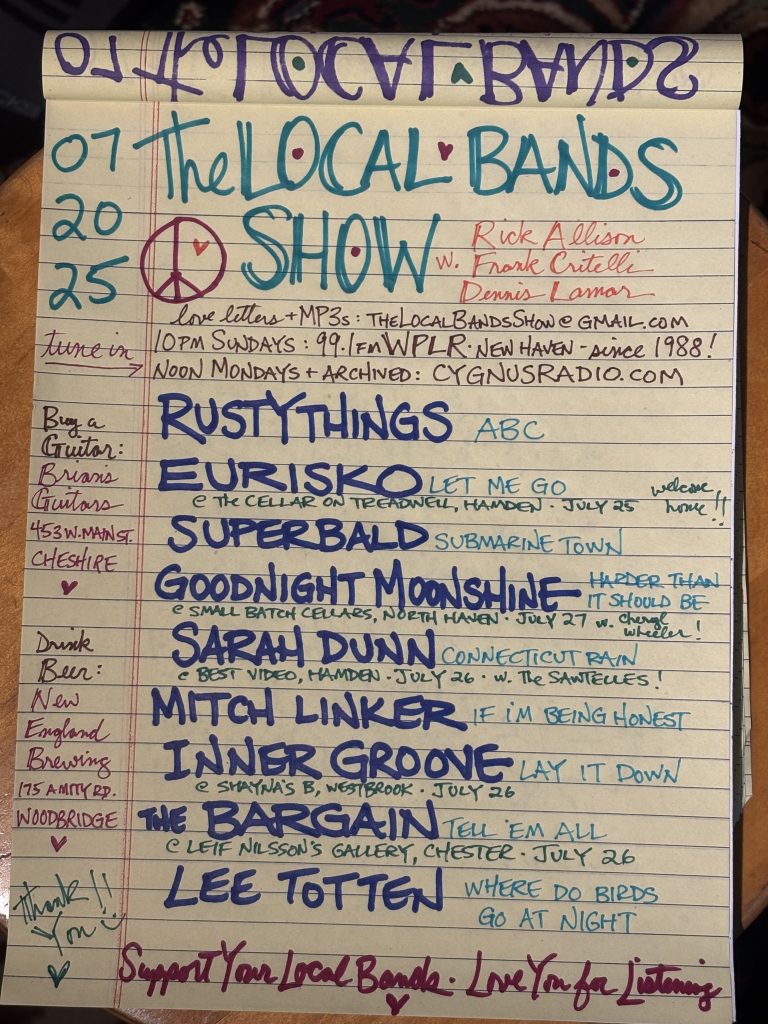 07 The LOCAL BANDS
07
20
25
The LOCAL BANDS
SHOW
w. Rick Allison
Frank Critelli
Dennis Lamar
love letters + MP3s : THELOCALBANDSSHOW@GMAIL.COM
tune in
10PM SUNDAYS : 99.1FM WPLR · NEW HAVEN - since 1988!
NOON MONDAYS + ARCHIVED : CYGNUSRADIO.COM
Buy a
Guitar:
Brian's
Guitars
453 W. MAIN ST.
CHESHIRE
Drink
Beer:
New
England
Brewing
175 AMITY RD.
WOODBRIDGE
Thank!!
You
RUSTY THINGS ABC
EURISKO LET ME GO
@ THE CELLAR ON TREADWELL, HAMDEN · JULY 25 welcome home!!
SUPERBALD SUBMARINE TOWN
GOODNIGHT MOONSHINE HARDER THAN
IT SHOULD BE
@ SMALL BATCH CELLARS, NORTH HAVEN · JULY 27 w. Cheryl Wheeler!
SARAH DUNN CONNECTICUT RAIN
@ BEST VIDEO, HAMDEN · JULY 26 · w. The SAWTELLES!
MITCH LINKER IF I'M BEING HONEST
INNER GROOVE LAY IT DOWN
@ SHAYNA'S B, WESTBROOK · JULY 26
THE BARGAIN TELL 'EM ALL
@ LEIF NILSSON'S GALLERY, CHESTER · JULY 26
LEE TOTTEN WHERE DO BIRDS
GO AT NIGHT
Support Your Local Bands · Love You for Listening